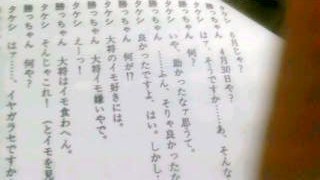 タケシ　6月じゃ？
勝っちゃん　4月30日や？
タケシ　はァ、そうですか……あ、そんな
勝っちゃん　いや、助かったなァ思うて。
タケシ　……ふん、そりゃ良かったな
勝っちゃん　良かったですよ、はい。しかし、
タケシ　何が!?
勝っちゃん　大将のイモ好きには。
タケシ　大将イモ嫌いやで。
勝っちゃん　えーっ！
タケシ　大将はイモ食わへん。
勝っちゃん　そんじゃこれ！（とイモを見
タケシ　何や？
勝っちゃん　はァ……。イヤガラセですか